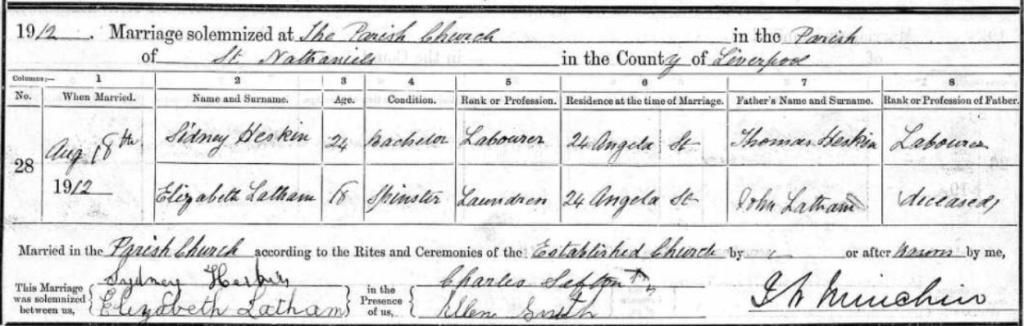 1912. Marriage solemnized at The Parish Church in the Parish
of St. Nathaniels in the County of Liverpool
Columns:— 1 2 3 4 5 6 7 8
No. When Married. Name and Surname. Age. Condition. Rank or Profession. Residence at the time of Marriage. Father's Name and Surname. Rank or Profession of Father.
28 Aug 18th 1912 Sidney Heskin 24 Bachelor Labourer 24 Angela St Thomas Heskin Labourer
Elizabeth Latham 18 Spinster Laundress 24 Angela St John Latham deceased
Married in the Parish Church according to the Rites and Ceremonies of the Established Church by or after Banns by me,
This Marriage was solemnized between us, Sydney in the Presence of us, Charles Sefton
Elizabeth Latham Ellen Smith
Minchin